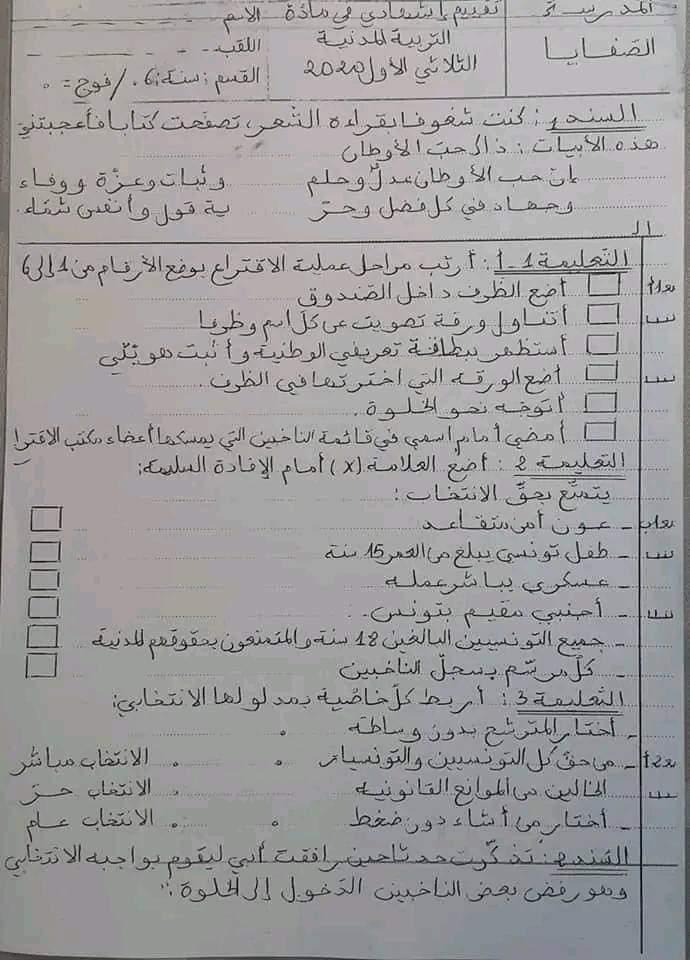 المدرسة
الصفايا
تقييم إشهادي في مادة
التربية المدنية
الثلاثي الأول 2020
الاسم
اللقب
القسم : سنة : 6 / فوج =
السند 1 : كنت شغوفا بقراءة الشعر، تصفحت كتابا فأعجبتني
هذه الأبيات : ذاك حب الأوطان
إن حب الأوطان عدل وحلم وثبات وعزة ووفاء
وجهاد في كل فضل وحر ية قول وأنفس شمّاء.
التعليمة 1 - أ : أرتب مراحل عملية الاقتراع بوضع الأرقام من 1 إلى 6
مع1أ
أضع الظرف داخل الصندوق
أتناول ورقة تصويت عن كل اسم وظرفا
أستظهر ببطاقة تعريفي الوطنية وأثبت هويتي
أضع الورقة التي اخترتها في الظرف.
أتوجه نحو الخلوة.
أمضي أمام اسمي في قائمة الناخبين التي يمسكها أعضاء مكتب الاقترا
التعليمة 2 : أضع العلامة (x) أمام الإفادة السليمة:
يتمتع بحق الانتخاب :
مع1ب
- عون أمن متقاعد
- طفل تونسي يبلغ من العمر 15 سنة
- عسكري يباشر عمله
- أجنبي مقيم بتونس.
- جميع التونسيين البالغين 18 سنة والمتمتعون بحقوقهم المدنية
- كل مرسّم بسجل الناخبين
التعليمة 3 : أربط كل خاصية بمدلولها الانتخابي:
- أختار المترشح بدون وساطة
مع2أ
- من حق كل التونسيين والتونسيات الانتخاب مباشر
الخالين من الموانع القانونية الانتخاب حرّ
- أختار من أشاء دون ضغط الانتخاب عام
السند 2 : تذكرت حدثا حين رافقت أبي ليقوم بواجبه الانتخابي
وهو رفض بعض الناخبين الدخول إلى الخلوة :